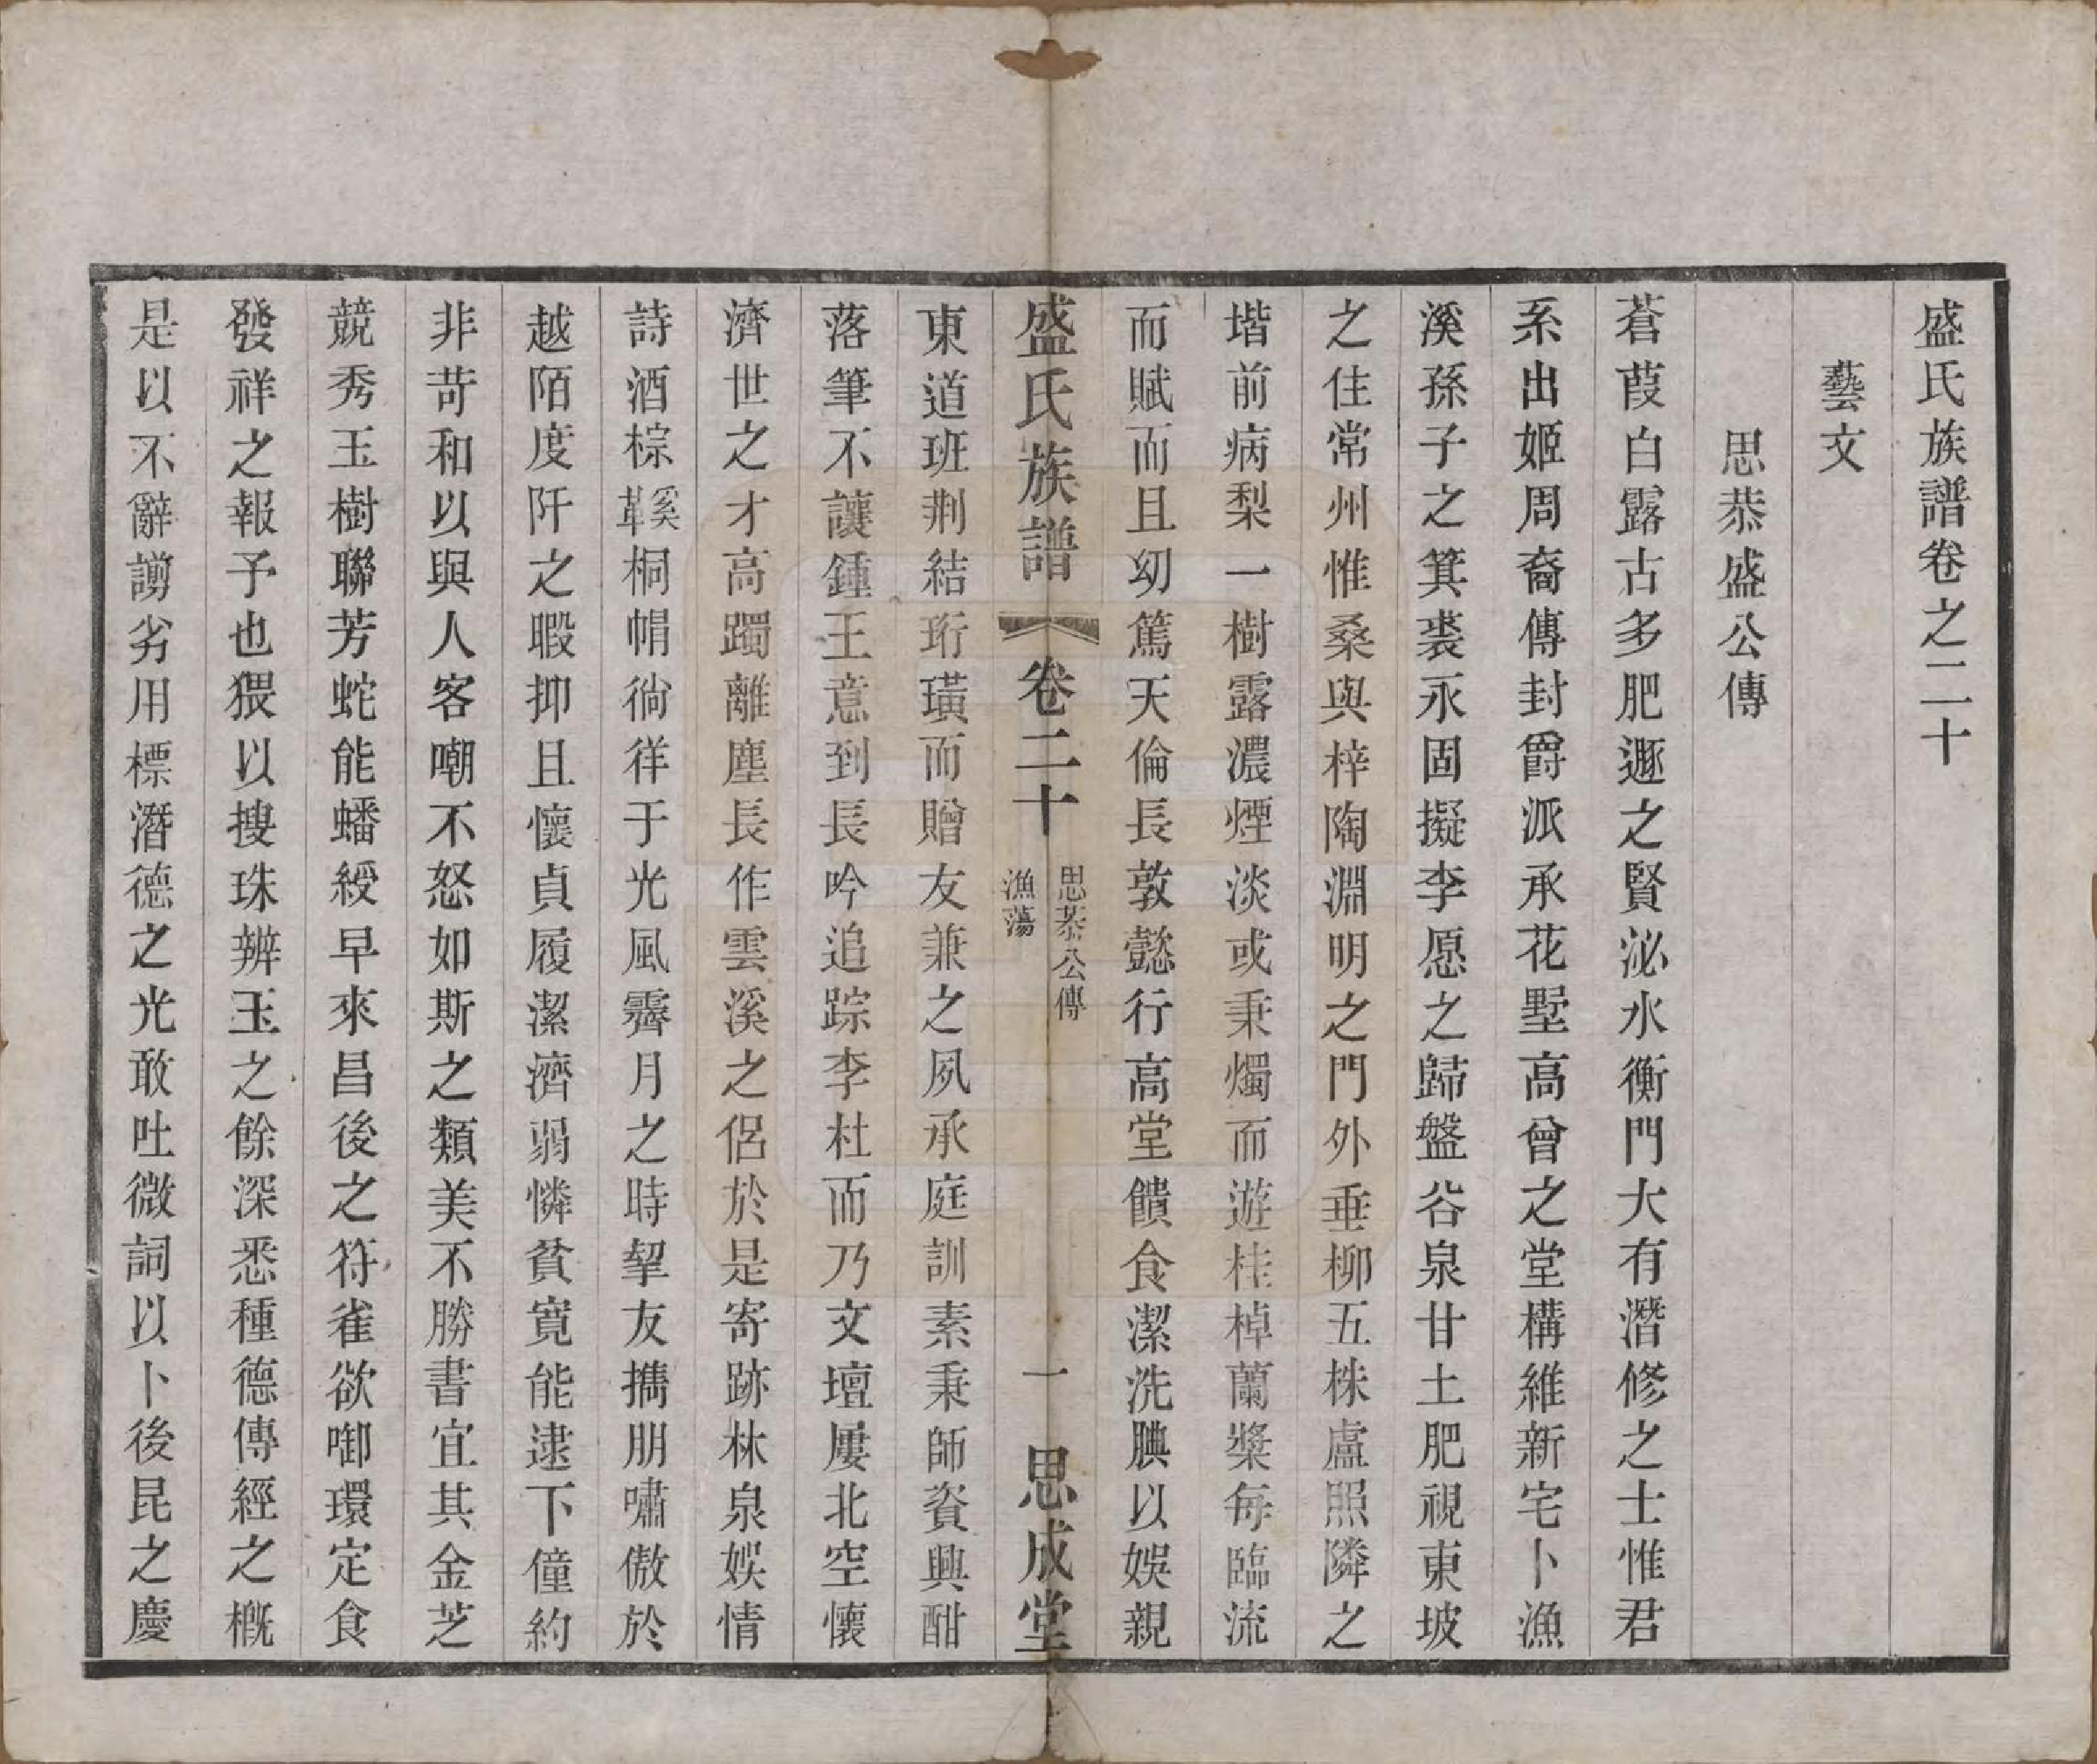 盛氏族譜卷之二十
藝文
思恭盛公傳
蒼葭白露古多肥遯之賢泌水衡門大有潛修之士惟君
系出姬周裔傳封爵派承花墅高曾之堂構維新宅卜漁
溪孫子之箕裘永固擬李愿之歸盤谷泉甘土肥視東坡
之住常州惟桑與梓陶淵明之門外垂柳五株盧照隣之
堦前病梨一樹露濃煙淡或秉燭而遊桂棹蘭槳每臨流
而賦而且幼篤天倫長敦懿行高堂饋食潔洗腆以娛親
東道班荆結珩璜而贈友兼之夙承庭訓素秉師資興酣
落筆不讓鍾王意到長吟追踪李杜而乃文壇屢北空懷
濟世之才高躅離塵長作雲溪之侶於是寄跡林泉娛情
詩酒棕鞵桐帽徜徉于光風霽月之時挈友攜朋嘯傲於
越陌度阡之暇抑且懷貞履潔濟弱憐貧寬能逮下僮約
非苛和以與人客嘲不怒如斯之類美不勝書宜其金芝
競秀玉樹聯芳蛇能蟠綬早來昌後之符雀欲啣環定食
發祥之報予也猥以搜珠辨玉之餘深悉種德傳經之概
是以不辭謭劣用標潛德之光敢吐微詞以卜後昆之慶
盛氏族譜
卷二十
思恭公傳
漁蕩
一
思成堂